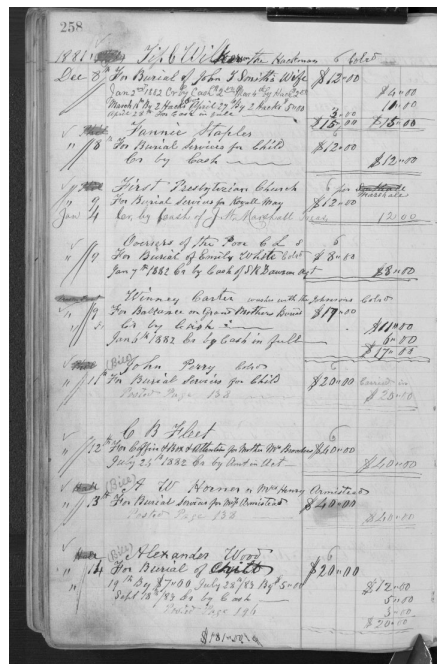 258
1881 Hackman Cold
Dec 8th For Burial of John T Smiths Wife $12.00
Jan 2nd 1882 Cr by Cash $4.00
March 16 By 2 Hacks April 27th By 2 Hacks 5.00
April 28th For Cash in full 3.00
$15.00 $15.00
Fannie Staples 6
" 8th For Burial Services for Child $12.00
Cr by Cash $12.00
First Presbyterian Church 6 for Marshall
" 9 For Burial Services for Royall May $12.00
Jan 4 Cr by Cash of J. W. Marshall 12.00
Overseers of the Poor C L 6
" 9 For Burial of Emily White Cold $8.00
Jan 7th 1882 Cr by Cash of S R Dawson Agt $8.00
Winney Carter works with the Johnsons Cold
" 9 For Ballance on Grand Mothers Burial $17.00
" Cr by Cash $11.00
Jan 6th 1882 Cr by Cash in full 6.00
$17.00
(Bill) John Perry Cold 6
" 11th For Burial Services for Child $20.00
Posted Page 132 $20.00
C B Fleet 6
" 12th For Coffin & Box & Attention for Mother $40.00
July 25th 1882 Cr by Amt in Acct $40.00
(Bill) W Horner or Mrs Henry Armistead
" 13th For Burial Services for Armistead $40.00
Posted Page 132 $40.00
(Bill) Alexander Wood 6
" 14 For Burial of Child $20.00
19th By $7.00 July 28th /83 By 5.00 $12.00
Sept 13th /83 Cr by Cash 5.00
Posted Page 196 3.00
$20.00
$181.00